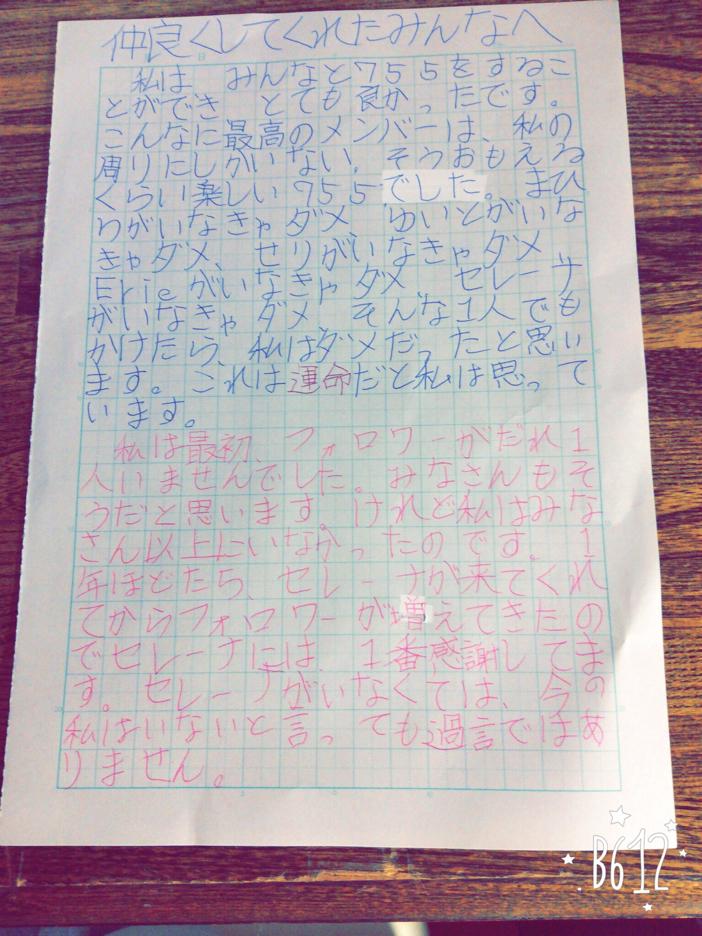 仲良くしてくれたみんなへ
私は、みんなと755をするこ
とができ、とても良かったです。
こんなに最高のメンバーは、私の
周りにしかいない。そうおもえる
くらい楽しい755でした。まひ
りがいなきゃダメ、ゆいとがいな
きゃダメ、せりがいなきゃダメ、
Erieがいなきゃダメ、セレーナ
がいなきゃダメ、そんな1人でも
かけたら、私はダメだったと思い
ます。これは運命だと私は思って
います。
私は最初、フォロワーがだれ1
人いませんでした。みなさんもそ
うだと思います。けれど私はみな
さん以上にいなかったのです。1
年ほどたら、セレーナが来てくれ
てからフォロワーが増えてきたの
でセレーナには、1番感謝してま
す。セレーナがいなくては、今の
私はいないと言っても過言ではあ
りません。
B612